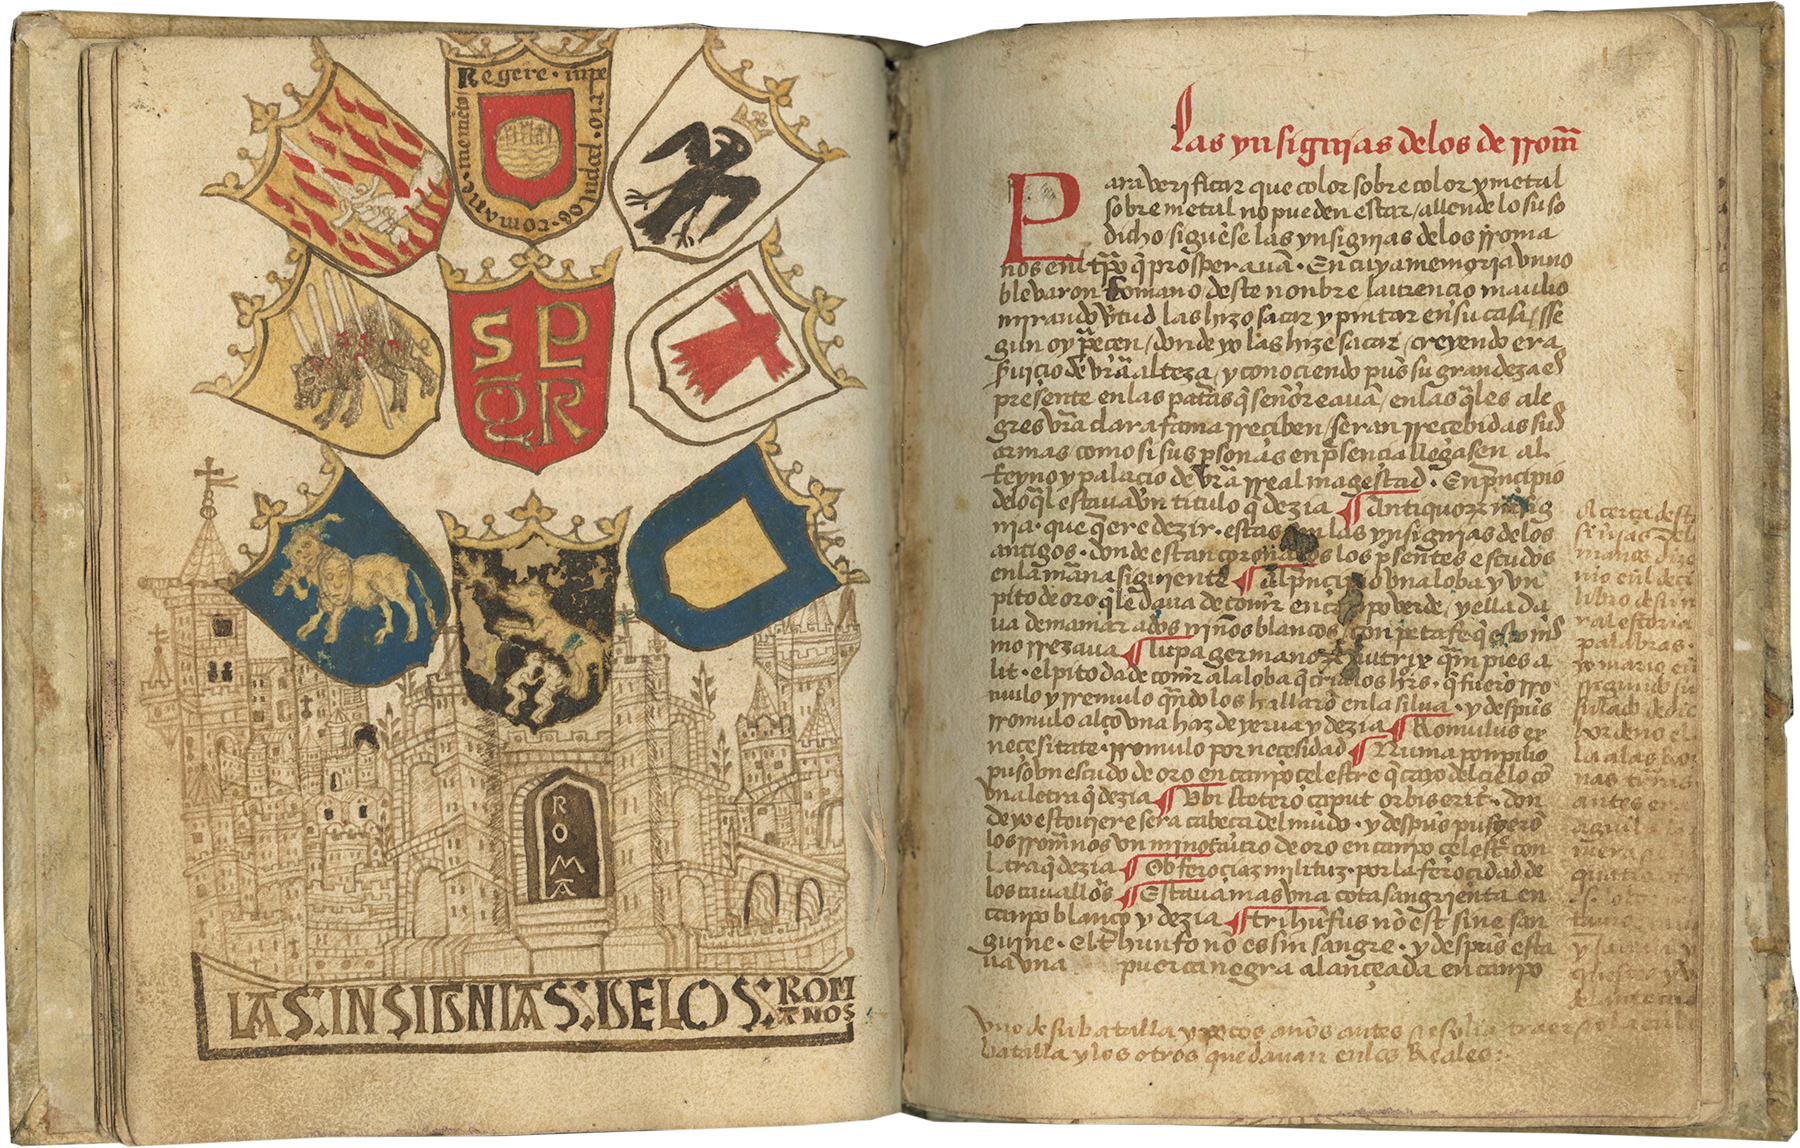 Regere · inpe
rio · pp̃los · romane · memẽto
S P
Q R
R
O
M
A
LAS: INSIGNIAS: DE LOS: ROM
ANOS
14
Las ynsignias delos de rrom̃
Para verificar que color sobre color y metal
sobre metal no pueden estar / allende lo suso
dicho / siguẽse las ynsignias delos rroma
nos enl tp̃o q̃ prosperauã · En cuya memoria vn no
ble varon Romano / deste nonbre laurencio maulio
mirando v̉tud las hizo sacar y pintar en su casa / sse
gun oy p̃ecen / donde yo las hize sacar / creyendo era
s̉uicio de vr̃a alteza / y conociendo pus̉ su grandeza es̉
presente en las patãs q̃ señoreauã / en las q̃les ale
gres vr̃a clara fama rreciben / seran rrecebidas sus̉
armas como si sus psonãs en p̃sencia llegasen al
Reyno y palacio de vr̃a rreal magestad · En pncipio
delo q̃l estaua vn titulo q̃ dezia ¶ Antiquorz insig
nia · que q̃ere dezir · estas son las ynsignias delos
antigos · donde estan coronados los psentes escudos
en la mãna siguiente ¶ al pncipio vna loba y vn
pito de oro q̃ le daua de com̉r en canpo verde / y ella da
ua de mamar a dos niños blancos / con petafe q̃ esto mis̉
mo rrezaua ¶ lupa germano nutrix q̃m pies a
lit · el pito da de com̉r a la loba q̃ cria los hr̃s · q̃ fuerõ rro
mulo y rremulo q̃ndo los hallarõ en la silua · y despus̉
rromulo alço vna haz de yerua y dezia ¶ Romulus ex
necesitate · rromulo por necesidad ¶ Numa ponpilio
puso vn escudo de oro en canpo celestre q̃ cayo del cielo cõ
vna letra q̃ dezia ¶ Vbi stetero caput orbis erit · don
de yo estouiere sera cabeça del mũdo · y despus̉ pusyerõ
los rrom̃nos vn minotauro de oro en canpo celestr̉ con
Ltra q̃ dezia ¶ Ob ferociaz milituz · por la ferocidad de
los cauallos̉ ¶ Estaua mas vna cota sangrienta en
canpo blanco y dezia ¶ trihũfus nõ est sine san
guine · el t̉hunfo no es sin sangre · y despus̉ esta
ua vna puerca negra alançeada en canpo
Acerca dest
palabras ·
antes
aguila
vno de su batalla y pocos años antes se solia traer
batalla y los otros quedauan en los Reales:·